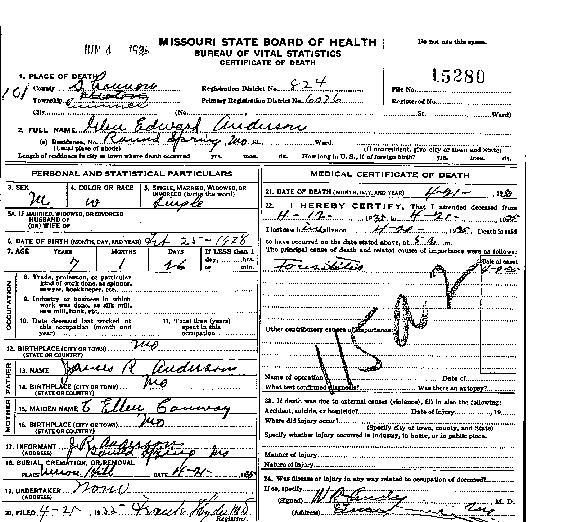 JUN 4 1935
MISSOURI STATE BOARD OF HEALTH
BUREAU OF VITAL STATISTICS
CERTIFICATE OF DEATH
Do not use this space.
15280
1. PLACE OF DEATH
County Shannon Registration District No. 824 File No.
Township Primary Registration District No. 6036 Registered No.
City (No. St. Ward)
2. FULL NAME Glen Edward Anderson
(a) Residence, No. Round Spring Mo St. Ward.
(Usual place of abode) (If nonresident, give city or town and State)
Length of residence in city or town where death occurred yrs. mos. ds. How long in U. S., if of foreign birth? yrs. mos. ds.
PERSONAL AND STATISTICAL PARTICULARS
3. SEX M 4. COLOR OR RACE W 5. SINGLE, MARRIED, WIDOWED, OR DIVORCED (write the word) Single
5A. IF MARRIED, WIDOWED, OR DIVORCED
HUSBAND OF
(OR) WIFE OF
6. DATE OF BIRTH (MONTH, DAY, AND YEAR) 25-1928
7. AGE YEARS 7 MONTHS 1 DAYS 26 IF LESS than 1 day, hrs. or min.
OCCUPATION
8. Trade, profession, or particular kind of work done, as spinner, sawyer, bookkeeper, etc.
9. Industry or business in which work was done, as silk mill, saw mill, bank, etc.
10. Date deceased last worked at this occupation (month and year)
11. Total time (years) spent in this occupation
12. BIRTHPLACE (CITY OR TOWN) Mo
(STATE OR COUNTRY)
FATHER
13. NAME James R Anderson
14. BIRTHPLACE (CITY OR TOWN) Mo
(STATE OR COUNTRY)
MOTHER
15. MAIDEN NAME E Ellen Conway
16. BIRTHPLACE (CITY OR TOWN) Mo
(STATE OR COUNTRY)
17. INFORMANT J R Anderson
(ADDRESS) Round Spring Mo
18. BURIAL, CREMATION, OR REMOVAL
PLACE Union Hill DATE 4-21- 1935
19. UNDERTAKER None
(ADDRESS)
20. FILED 4-25-, 1935 Frank Hyde MD
Registrar
MEDICAL CERTIFICATE OF DEATH
21. DATE OF DEATH (MONTH, DAY, AND YEAR) 4-21- 1935
22. I HEREBY CERTIFY, That I attended deceased from
4-17-, 1935, to 4-21-, 1935
I last saw alive on 4-20-, 1935. Death is said
to have occurred on the date stated above, at m.
The principal cause of death and related causes of importance were as follows:
Date of onset
Tonsilitis
115a
Other contributory causes of importance:
Name of operation Date of
What test confirmed diagnosis? Was there an autopsy?
23. If death was due to external causes (violence), fill in also the following:
Accident, suicide, or homicide? Date of injury , 19
Where did injury occur?
(Specify city or town, county, and State)
Specify whether injury occurred in industry, in home, or in public place.
Manner of injury
Nature of injury
24. Was disease or injury in any way related to occupation of deceased?
If so, specify
(Signed) M. D.
(Address) Mo